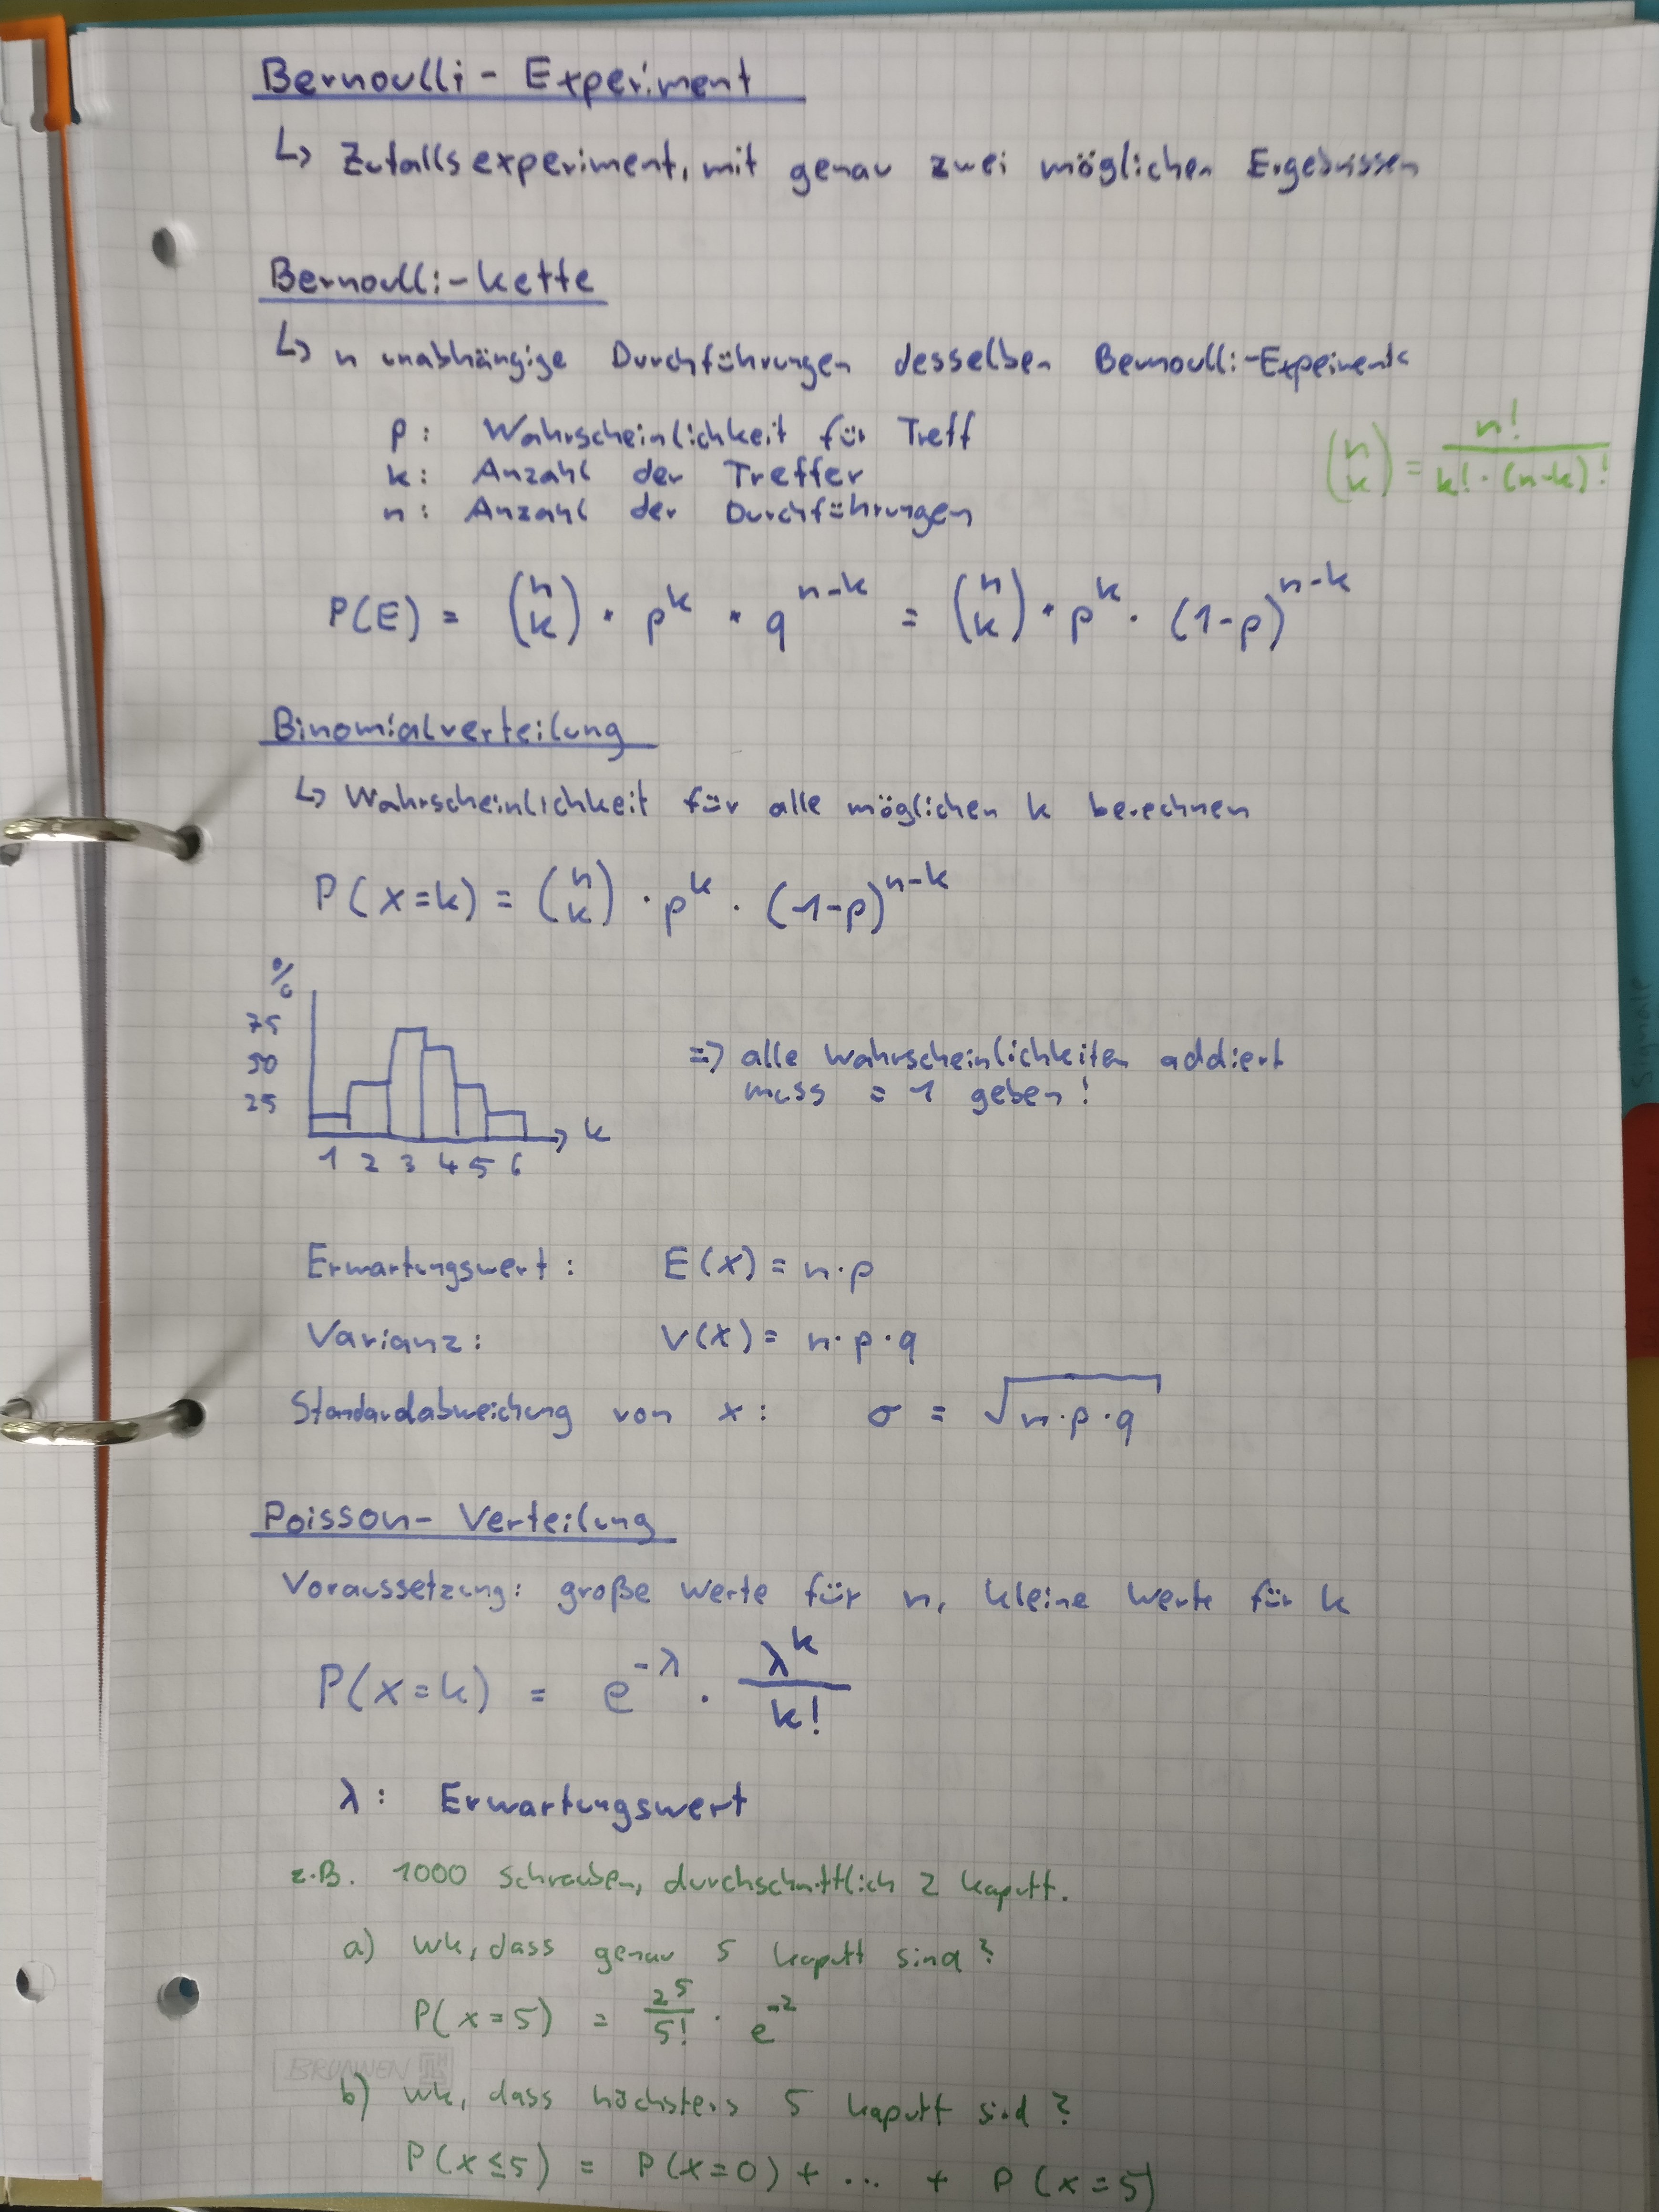 Bernoulli - Experiment
↳ Zufallsexperiment, mit genau zwei möglichen Ergebnissen
Bernoulli-Kette
↳ n unabhängige Durchführungen desselben Bernoulli-Expeiments
p: Wahrscheinlichkeit für Treff
k: Anzahl der Treffer
n: Anzahl der Durchführungen
(n k) = n! / k! · (n-k)!
P(E) = (n k) · p^k · q^(n-k) = (n k) · p^k · (1-p)^(n-k)
Binomialverteilung
↳ Wahrscheinlichkeit für alle möglichen k berechnen
P(x=k) = (n k) · p^k · (1-p)^(n-k)
%
75
50
25
1 2 3 4 5 6
k
=> alle Wahrscheinlichkeiten addiert
muss = 1 geben!
Erwartungswert: E(x) = n·p
Varianz: V(x) = n·p·q
Standardabweichung von x: σ = √(n·p·q)
Poisson- Verteilung
Voraussetzung: große Werte für n, kleine Werte für k
P(x=k) = e^(-λ) · λ^k / k!
λ: Erwartungswert
z.B. 1000 Schrauben, durchschnittlich 2 kaputt.
a) Wk, dass genau 5 kaputt sind?
P(x=5) = 2^5 / 5! · e^(-2)
BRUNNEN
b) Wk, dass höchstens 5 kaputt sind?
P(x≤5) = P(x=0) + ... + P(x=5)
Signale